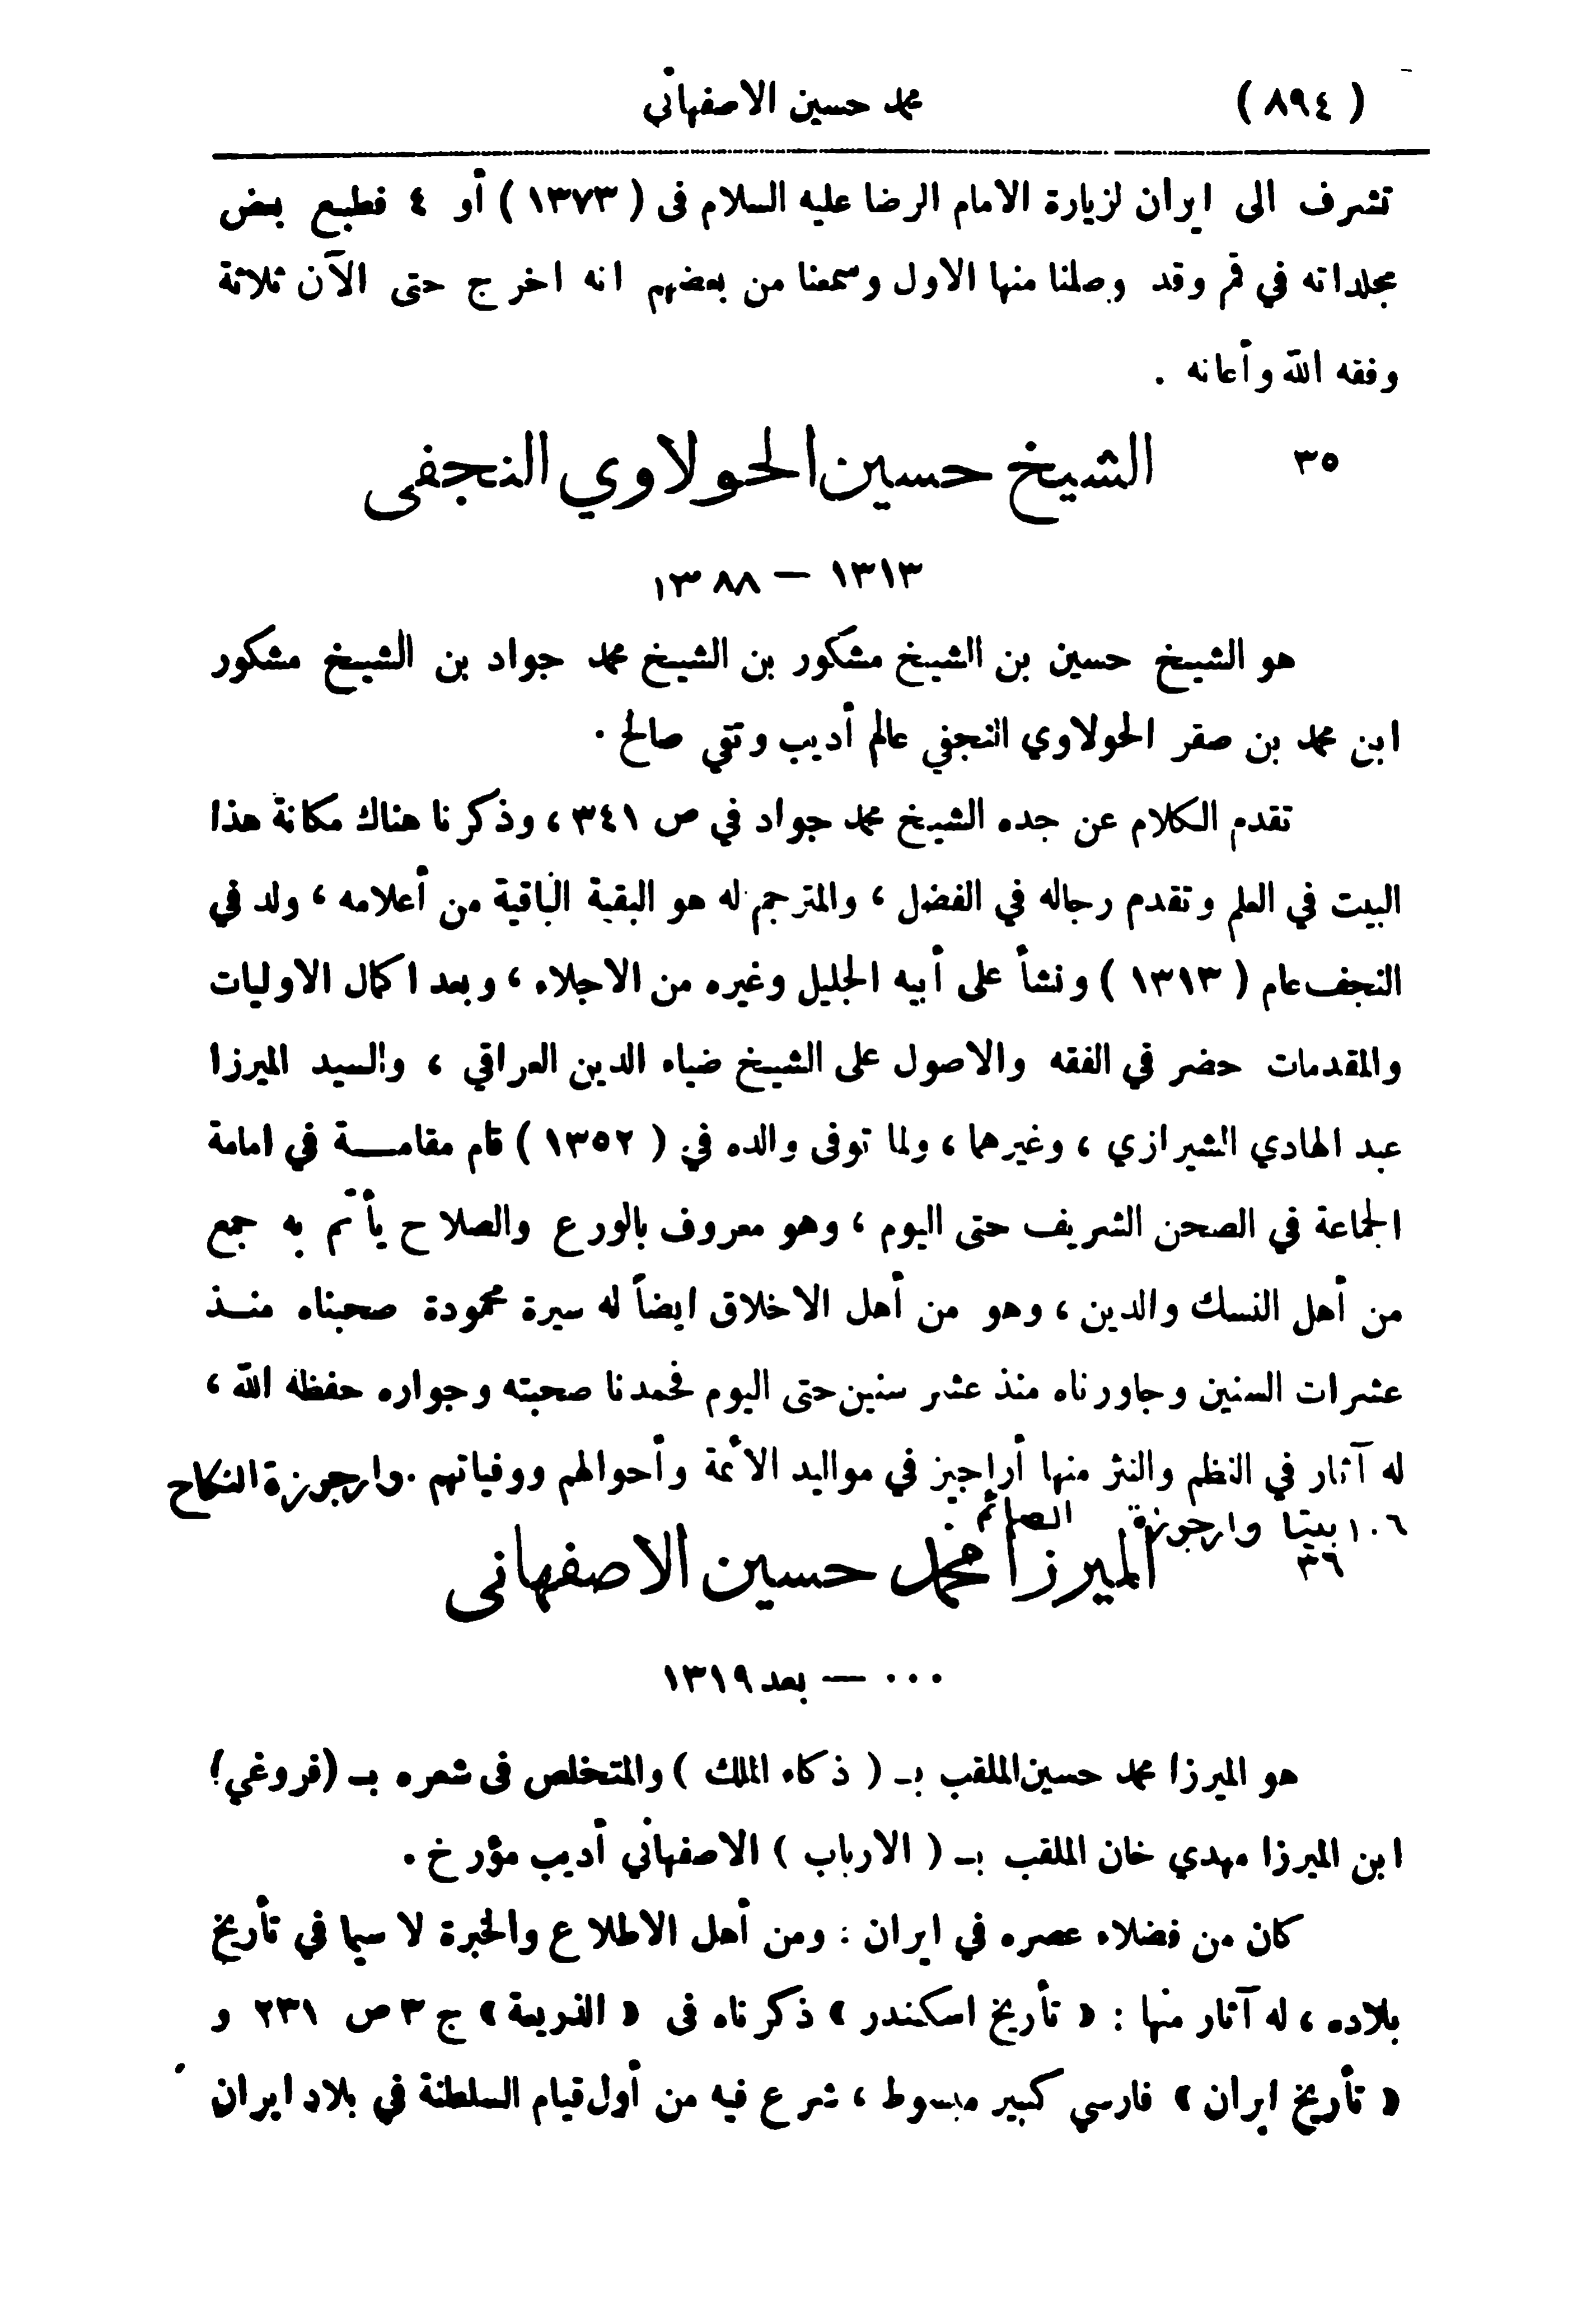 ( ٨٩٤ ) محمد حسين الاصفهاني
تشرف الى ايران لزيارة الامام الرضا عليه السلام فى ( ١٣٧٣ ) أو ٤ فطبع بعض
مجلداته في قم وقد وصلنا منها الاول وسمعنا من بعضهم انه اخرج حتى الآن ثلاثة
وفقه الله وأعانه .
٣٥ الشيخ حسين الحولاوي النجفى
١٣١٣ — ١٣٨٨
هو الشيخ حسين بن الشيخ مشكور بن الشيخ محمد جواد بن الشيخ مشكور
ابن محمد بن صقر الحولاوي النجفي عالم أديب وتقي صالح .
تقدم الكلام عن جده الشيخ محمد جواد في ص ٣٤١ ، وذكرنا هناك مكانة هذا
البيت في العلم وتقدم رجاله في الفضل ، والمترجم له هو البقية الباقية من أعلامه ، ولد في
النجف عام ( ١٣١٣ ) ونشأ على أبيه الجليل وغيره من الاجلاء ، وبعد اكمال الاوليات
والمقدمات حضر في الفقه والاصول على الشيخ ضياء الدين العراقي ، والسيد الميرزا
عبد الهادي الشيرازي ، وغيرهما ، ولما توفى والده في ( ١٣٥٢ ) قام مقامـــة في امامة
الجماعة في الصحن الشريف حتى اليوم ، وهو معروف بالورع والصلاح يأتم به جمع
من أهل النسك والدين ، وهو من أهل الاخلاق ايضاً له سيرة محمودة صحبناه منـــذ
عشرات السنين وجاورناه منذ عشر سنين حتى اليوم فحمدنا صحبته وجواره حفظه الله ،
له آثار في النظم والنثر منها أراجيز في مواليد الأئمة وأحوالهم ووفياتهم . وارجوزة النكاح
١٠٦ بيتا وارجوزة الصائم .
٣٦ الميرزا محمد حسين الاصفهانى
... — بعد ١٣١٩
هو الميرزا محمد حسين الملقب بـ ( ذكاء الملك ) والمتخلص فى شعره بـ (فروغي)
ابن الميرزا مهدي خان الملقب بـ ( الارباب ) الاصفهاني أديب مؤرخ .
كان من فضلاء عصره في ايران : ومن أهل الاطلاع والخبرة لا سيما في تأريخ
بلاده ، له آثار منها : « تأريخ اسكندر » ذكرناه فى « الذريعة » ج ٣ ص ٢٣١ و
« تأريخ ايران » فارسي كبير مبسوط ، شرع فيه من أول قيام السلطنة في بلاد ايران